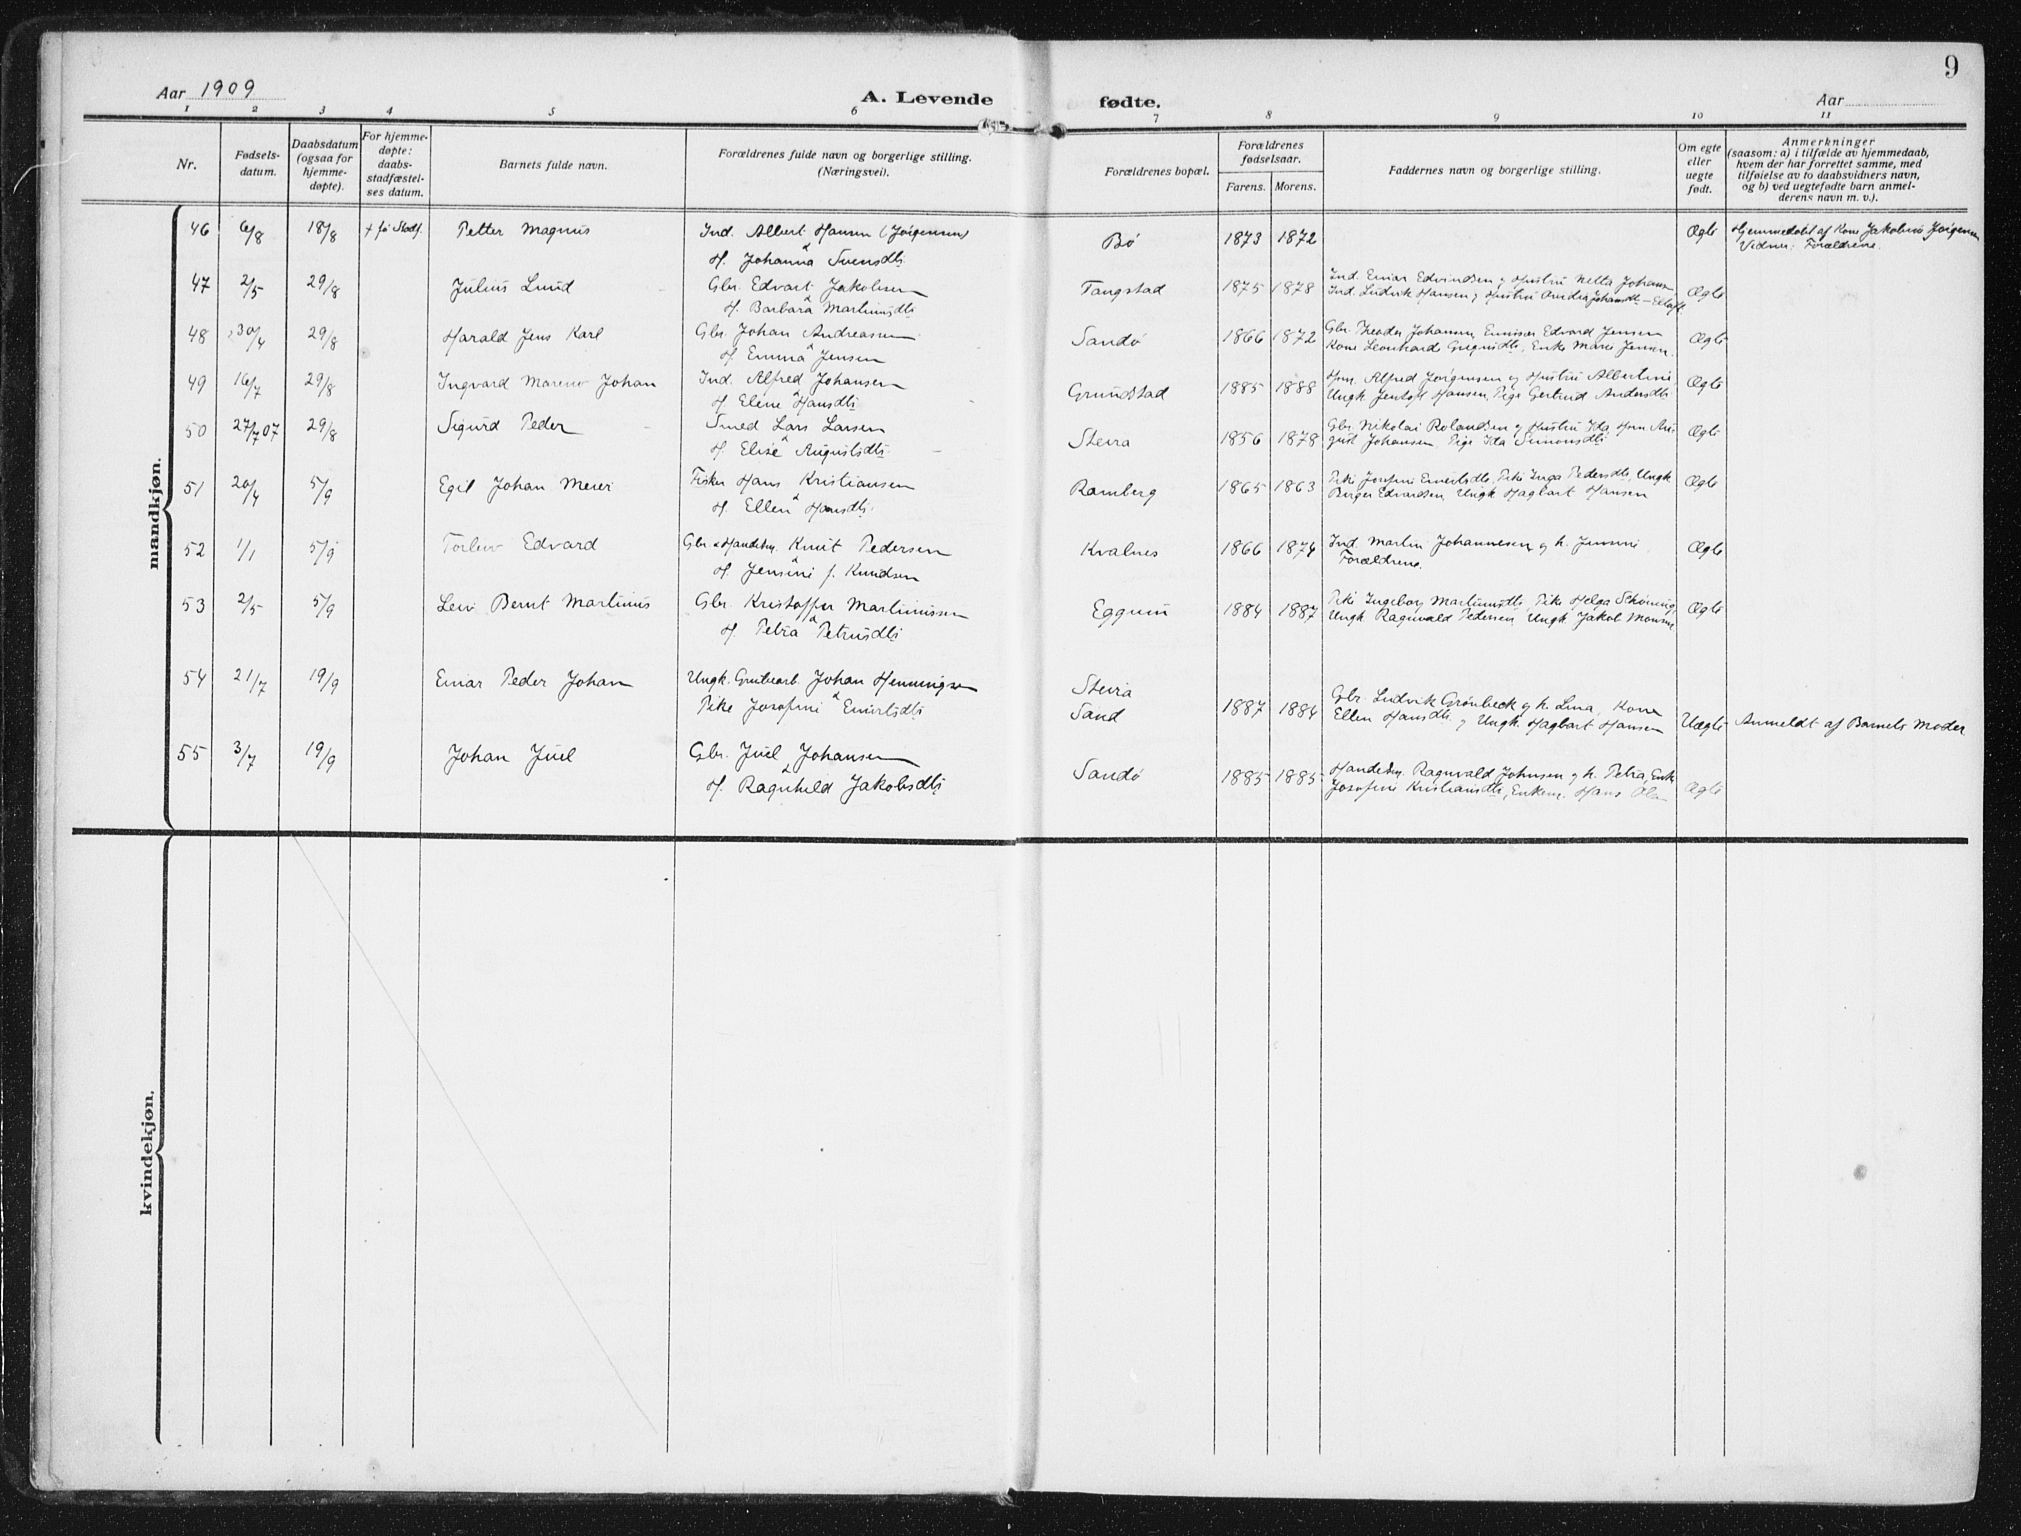 9
Aar 1909
A. Levende fødte.
Aar
1 2 3 4 5 6 7 8 9 10 11
Nr.
Fødsels-
datum.
Daabsdatum
(ogsaa for
hjemme-
døpte).
For hjemme-
døpte:
daabs-
stadfæstel-
ses datum.
Barnets fulde navn.
Forældrenes fulde navn og borgerlige stilling.
(Næringsvei).
Forældrenes bopæl.
Forældrenes
fødselsaar.
Farens. Morens.
Faddernes navn og borgerlige stilling.
Om egte
eller
uegte
født.
Anmerkninger
(saasom: a) i tilfælde av hjemmedaab,
hvem der har forrettet samme, med
tilføielse av to daabsvidners navn,
og b) ved uegtefødte barn anmel-
derens navn m. v.).
mandkjøn.
46 6/8 18/8 + før Stadf. Petter Magnus Ind. Albert Hansen (Jörgensen) Bö 1873 1872 Ægte Hjemmedöbt af Kone Jakobine Jörgensen
H. Johanna Svensdtr Vidner: Forældrene.
47 2/5 29/8 Julius Lund Gbr. Edvart Jakobsen Tangstad 1875 1878 Ind. Einar Edvindsen og Hustru Netta Johans Ægte
H. Barbara Martinusdtr Ind. Ludvik Hansen og Hustru
48 30/4 29/8 Harald Jens Karl Gbr. Johan Andreassen Sandö 1866 1872 Gbr. Theodor Johansen, Edvard Jensen Ægte
H. Emma Jensen Kone Leonharde, Enke Marie Jensen.
49 16/7 29/8 Ingvard Johan Ind. Alfred Johansen Grundstad 1885 1888 Alfred Jörgensen og Hustru Albertine, Ægte
H. Eline Hansdtr Ungk. Jentoft Hansen, Pige Gertrud Andersdtr
50 27/7 07 29/8 Sigurd Peder Smed Lars Larsen Steira 1856 1878 Gbr. Nikolai Rolandsen og Hustru Ida, Au- Ægte
H. Elise Augustsdtr gust Johansen, Pige Ida Simonsdtr
51 20/4 5/9 Egil Johan Meier Fisker Hans Kristiansen Ramberg 1865 1863 Pike Josefine Einertsdtr, Pike Inga Pedersdtr, Ungk. Ægte
H. Ellen Hansdtr. Birger Edvardsen, Ungk Hagbart Hansen
52 1/1 5/9 Torleiv Edvard Gbr. & Handelsm. Knut Pedersen Kvalnes 1866 1874 Ind. Martin Johannesen og h. Jensine Ægte
H. Jensine f. Knudsen Forældrene.
53 2/5 5/9 Leiv Bernt Martinus Gbr. Kristoffer Martinussen Eggum 1884 1887 Pike Ingeborg Martinusdtr, Pike Helga Schöning, Ægte
H. Petra Petrusdtr Ungk Ragnvald Pedersen, Ungk Jakob Monsen
54 21/7 19/9 Einar Peder Johan Ungk. Grubearb. Johan Henningsen Steira 1887 1884 Gbr. Ludvik Grönbeck og h. Lina, Kone Uægte Anmeldt af Barnets Moder
Pike Josefine Einertsdtr Sand Ellen Hansdtr. og Ungk. Hagbart Hansen
55 3/7 19/9 Johan Juel Gbr. Juel Johansen Sandö 1885 1885 Handelsm. Ragnvald Johnsen og h. Petra, Enk. Ægte
H. Ragnhild Jakobsdtr Josefine Kristiansdtr, Enkem. Hans Olsen
kvindekjøn.